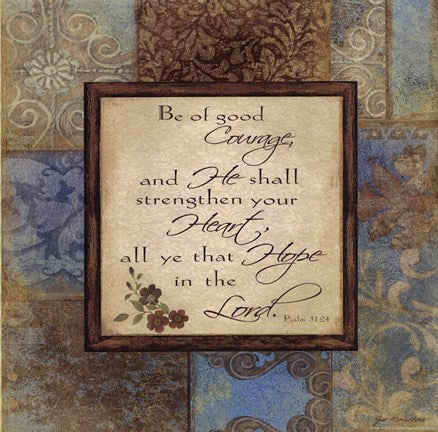 Be of good
Courage,
and He shall
strengthen your
Heart,
all ye that Hope
in the
Lord.
Psalm 31:24